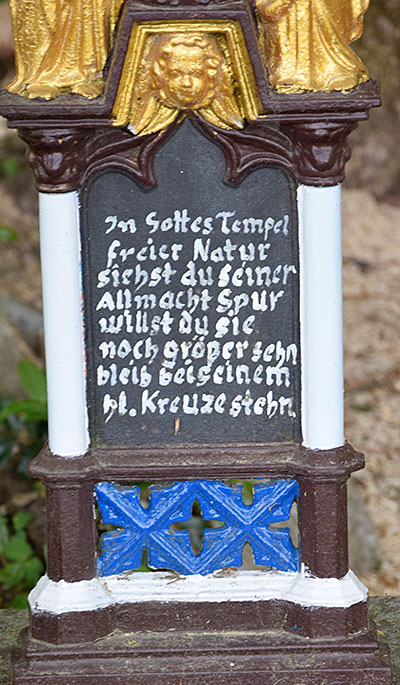 In Gottes Tempel
freier Natur
siehst du seiner
Allmacht Spur
willst du sie
noch größer sehn
bleib bei seinem
hl. Kreuze stehn